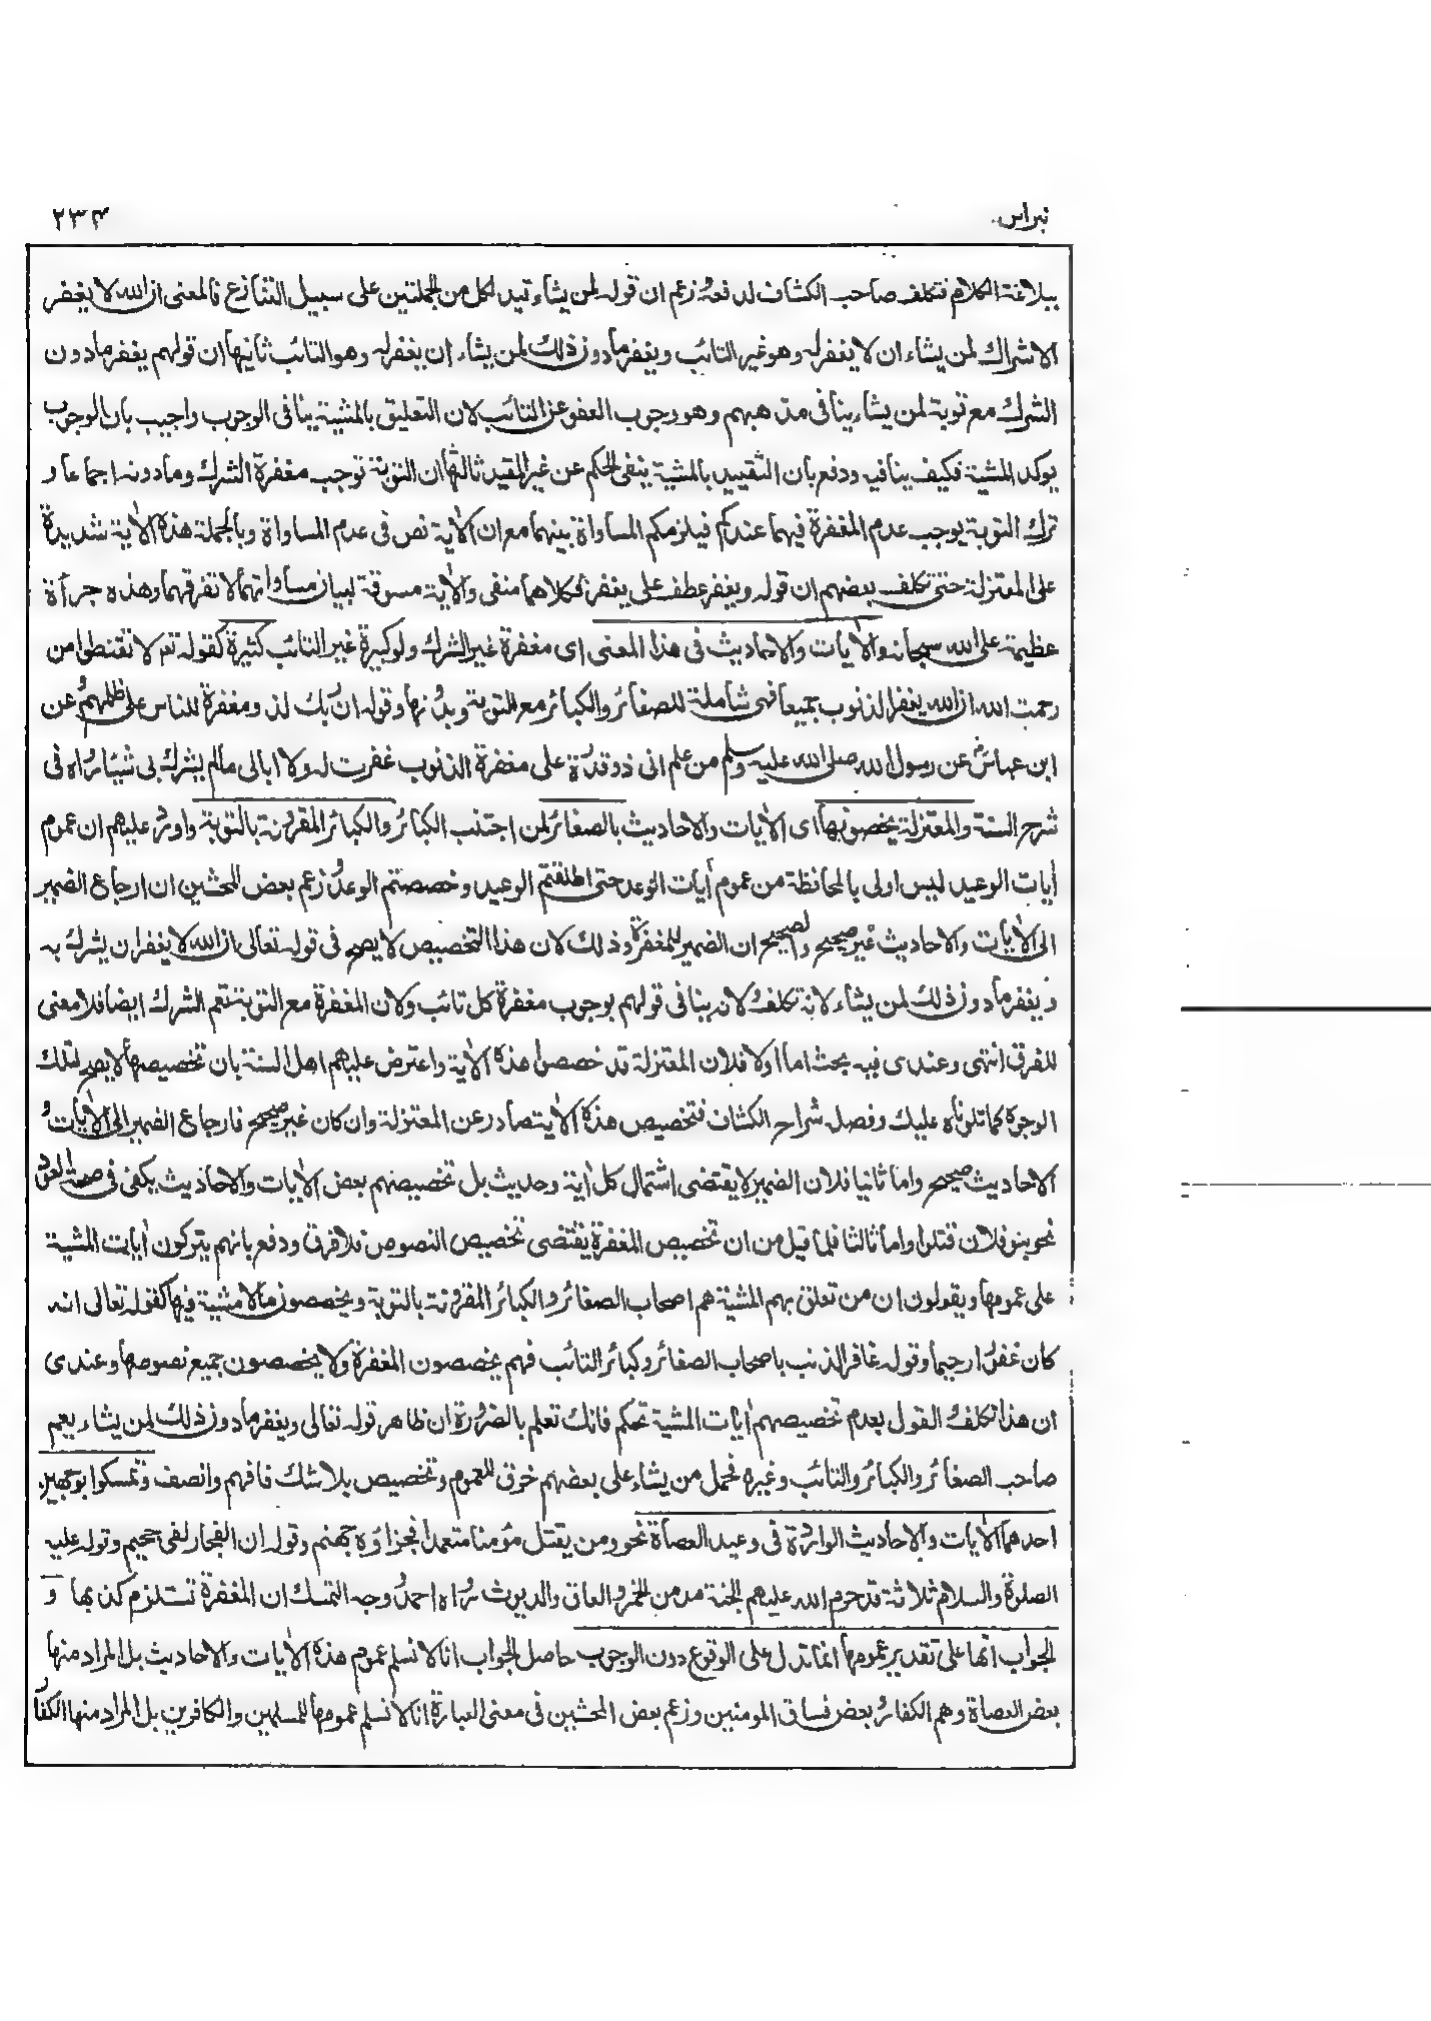 نبراس
۲۳۴
ببلاغة الكلام فتكلف صاحب الكشاف لدفعه زعم ان قوله لمن يشاء قيد لكل من الجملتين على سبيل التنازع فالمعنى ان الله لا يغفر
الاشراك لمن يشاء ان لا يغفر له وهو غير التائب ويغفر ما دون ذلك لمن يشاء ان يغفر له وهو التائب ثانيها ان قولهم يغفر ما دون
الشرك مع توبة لمن يشاء ينافى مذهبهم وهو وجوب العفو عن التائب لان التعليق بالمشية ينافى الوجوب واجيب بان الوجوب
يوكد المشية فكيف ينافيه ودفع بان التقييد بالمشية ينفى الحكم عن غير المقيد ثالثها ان التوبة توجب مغفرة الشرك وما دونه اجماعا و
ترك التوبة يوجب عدم المغفرة فيهما عندكم فيلزمكم المساواة بينهما مع ان الاٰية نص فى عدم المساواة وبالجملة هذه الاٰية شديدة
على المعتزلة حتى تكلف بعضهم ان قوله ويغفر عطف على يغفر فكلاهما منفى والاٰية مسوقة لبيان مساواتهما لا تفرقهما وهذه جرأة
عظيمة على الله سبحانه والاٰيات والاحاديث فى هذا المعنى اى مغفرة غير الشرك ولو كبيرة غير التائب كثيرة كقوله تعم لا تقنطوا من
رحمت الله ان الله يغفر الذنوب جميعا فهى شاملة للصغائر والكبائر مع التوبة وبدونها وقوله ان ربك لذو مغفرة للناس على ظلمهم وعن
ابن عباس عن رسول الله صلى الله عليه وسلم من علم انى ذو قدرة على مغفرة الذنوب غفرت له ولا ابالى ما لم يشرك بى شيئا رواه فى
شرح السنة والمعتزلة يخصونها اى الاٰيات والاحاديث بالصغائر لمن اجتنب الكبائر والكبائر المقرونة بالتوبة واورد عليهم ان عموم
اٰيات الوعيد ليس اولى بالمحافظة من عموم اٰيات الوعد حتى اطلقتم الوعيد وخصصتم الوعد وزعم بعض المحشين ان ارجاع الضمير
الى الاٰيات والاحاديث غير صحيح والصحيح ان الضمير للمغفرة وذلك لان هذا التخصيص لا يصح فى قوله تعالى ان الله لا يغفر ان يشرك به
ويغفر ما دون ذلك لمن يشاء لانه تكلف ولانه ينافى قولهم بوجوب مغفرة كل تائب ولان المغفرة مع التوبة تعم الشرك ايضا فلا معنى
للفرق انتهى وعندى فيه بحث اما اولا فلان المعتزلة قد خصصوا هذه الاٰية واعترض عليهم اهل السنة بان تخصيصها لا يصح لتلك
الوجوه كما تلوناه عليك وفصله شراح الكشاف فتخصيص هذه الاٰية صادر عن المعتزلة وان كان غير صحيح فارجاع الضمير الى الاٰيات و
الاحاديث صحيح واما ثانيا فلان الضمير لا يقتضى اشتمال كل اٰية وحديث بل تخصيصهم بعض الاٰيات والاحاديث يكفى فى صحة العود
نحو بنو فلان قتلوا واما ثالثا فلما قيل من ان تخصيص المغفرة يقتضى تخصيص النصوص فلا فرق ودفع بانهم يتركون اٰيات المشية
على عمومها ويقولون ان من تعلق بهم المشية هم اصحاب الصغائر والكبائر المقرونة بالتوبة ويخصصون ما لا مشية فيها كقوله تعالى انه
كان غفورا رحيما وقوله غافر الذنب باصحاب الصغائر وكبائر التائب فهم يخصصون المغفرة ولا يخصصون جميع نصوصها وعندى
ان هذا تكلف والقول بعدم تخصيصهم اٰيات المشية تحكم فانك تعلم بالضرورة ان ظاهر قوله تعالى ويغفر ما دون ذلك لمن يشاء يعم
صاحب الصغائر والكبائر والتائب وغيره فحمل من يشاء على بعضهم خرق للعموم وتخصيص بلا شك فافهم وانصف وتمسكوا بوجهين
احدهما الاٰيات والاحاديث الواردة فى وعيد العصاة نحو ومن يقتل مؤمنا متعمدا فجزاؤه جهنم وقوله ان الفجار لفى جحيم وقوله عليه
الصلوة والسلام ثلاثة قد حرم الله عليهم الجنة مدمن الخمر والعاق والديوث رواه احمد ووجه التمسك ان المغفرة تستلزم كذبها و
الجواب انها على تقدير عمومها انما تدل على الوقوع دون الوجوب حاصل الجواب انا لا نسلم عموم هذه الاٰيات والاحاديث بل المراد منها
بعض العصاة وهم الكفار وبعض فساق المومنين وزعم بعض المحشين فى معنى العبارة انا لا نسلم عمومها للمسلمين والكافرين بل المراد منها الكفار